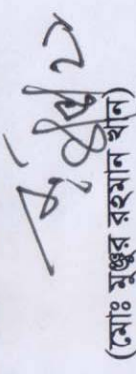 (মোঃ মুঞ্জুর রহমান খান)